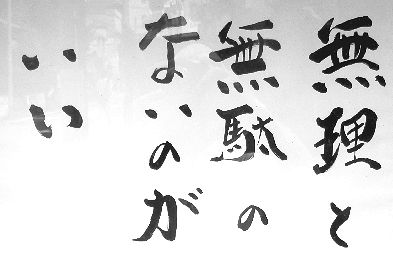 無理と
無駄の
ないのが
いい